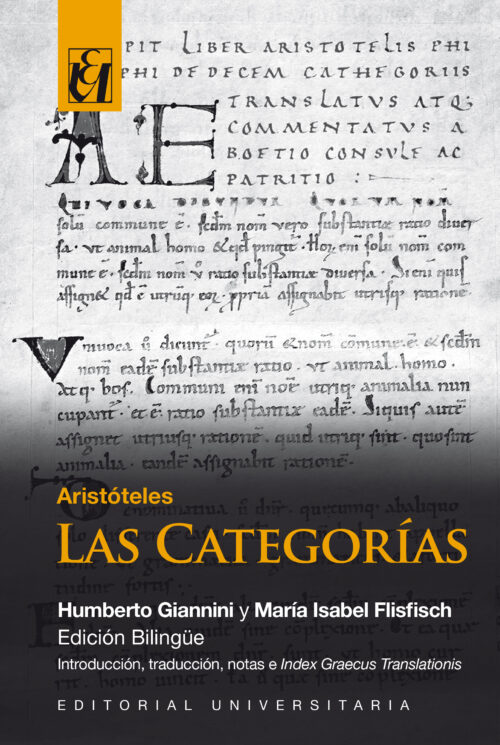 PIT LIBER ARISTOTELIS PHI
PHI DE DECEM CATHEGORIIS
TRANSLATUS ATQ;
COMMENTATUS A
BOETIO CONSULE AC
PATRITIO :
AE
solū commune ē. scdm nom̄ vero substantiæ ratio diver
sa. ut animal homo & qd pingit. Hoꝝ eni solū nom̄ com
mune ē. scdm nom̄ v̊ ratio substantiæ diversa. Si eni quis
assign& qd ē utruq; eoꝝ. ppriā assignabit utrisq; rationē.
Univoca ū dicunt. quorū & nom̄ cōmune. ē. & scdm
nom̄ eadē substantiæ ratio. ut animal. homo.
Atq. bos. Communi eni noē utriq; animalia nun
cupant. et ē ratio substantiæ eadē. Siquis autē
assignet utriusq; rationē. quid utriq; sint. quo sint
animalia. eandē assignabit rationē.
Aristóteles
LAS CATEGORÍAS
Humberto Giannini y María Isabel Flisfisch
Edición Bilingüe
Introducción, traducción, notas e Index Graecus Translationis
EDITORIAL UNIVERSITARIA